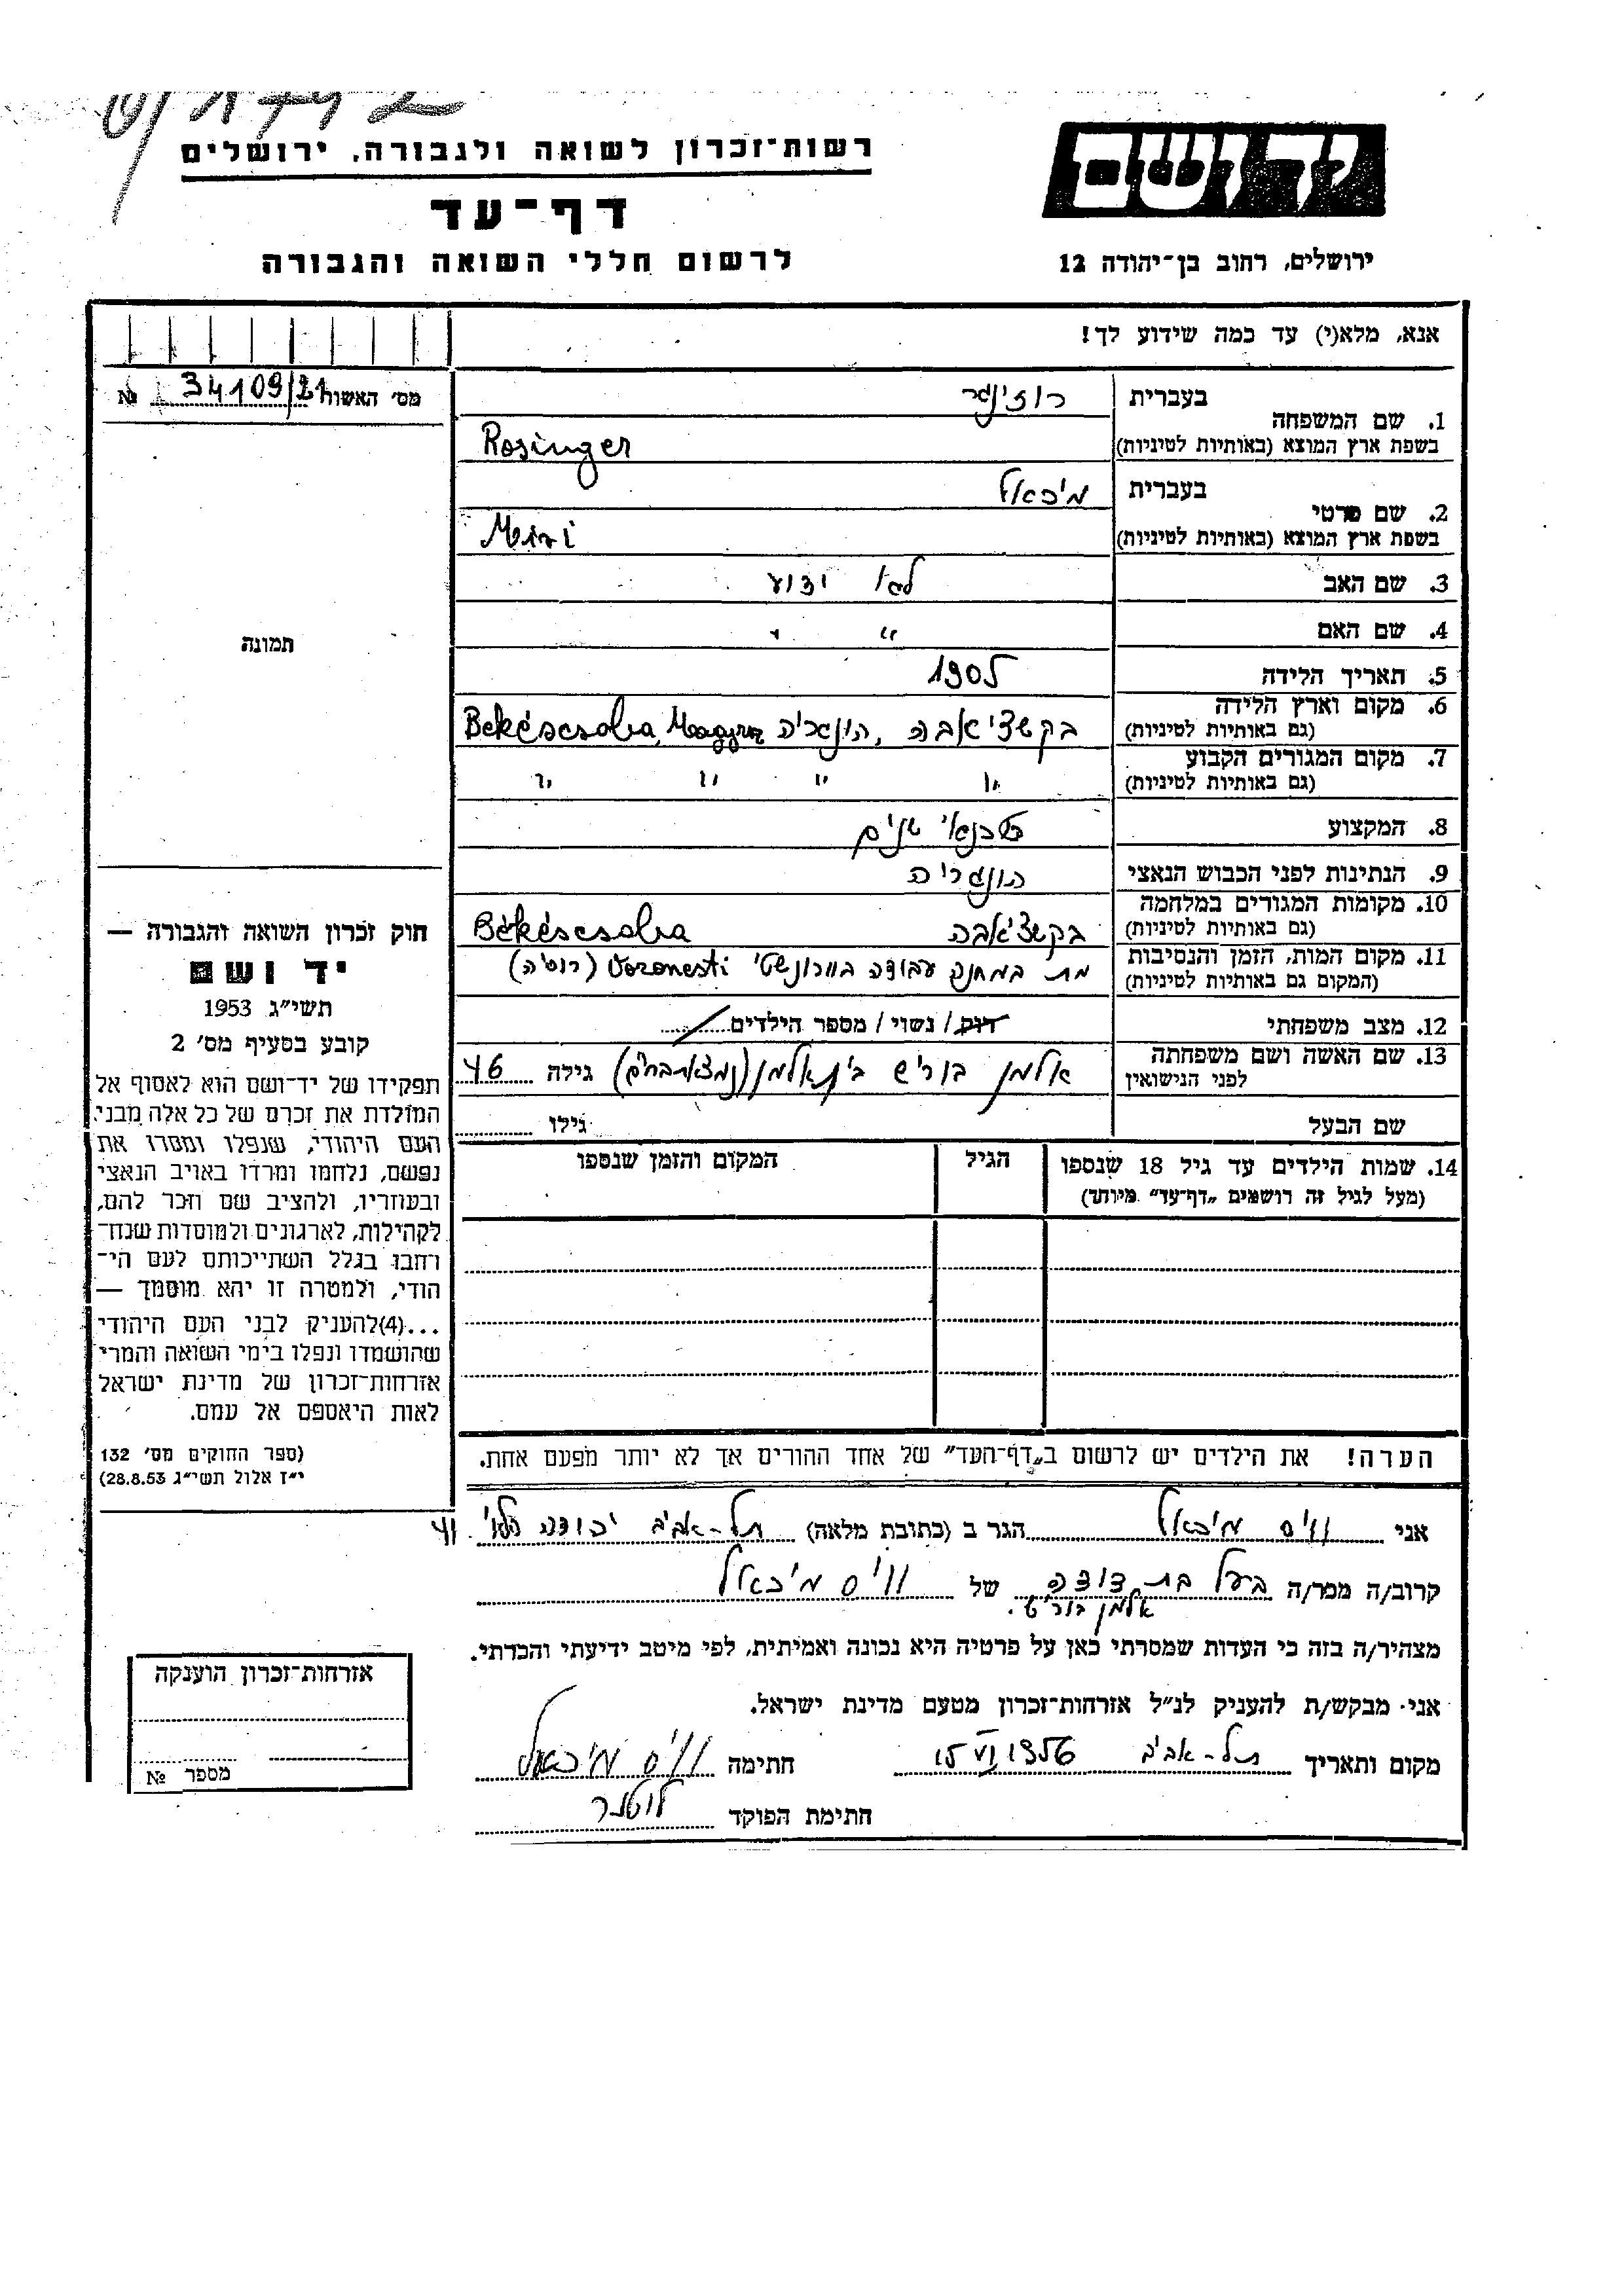 רשות־זכרון לשואה ולגבורה, ירושלים
דף־עד
לרשום חללי השואה והגבורה
ידושם
ירושלים, רחוב בן־יהודה 12
אנא, מלא(י) עד כמה שידוע לך!
מס׳ האשור 34109/21 №
1. שם המשפחה
בעברית רוזינגר
בשפת ארץ המוצא (באותיות לטיניות) Rosinger
2. שם פרטי
בעברית מיכאל
בשפת ארץ המוצא (באותיות לטיניות)
3. שם האב לא ידוע
4. שם האם " "
5. תאריך הלידה 1905
6. מקום וארץ הלידה
(גם באותיות לטיניות) הונגריה Békéscsaba
7. מקום המגורים הקבוע
(גם באותיות לטיניות) " " " "
8. המקצוע טכנאי שנים
9. הנתינות לפני הכבוש הנאצי הונגריה
10. מקומות המגורים במלחמה
(גם באותיות לטיניות) בקשצ'אבה Békéscsaba
11. מקום המות, הזמן והנסיבות
(המקום גם באותיות לטיניות) מת במחנה עבודה בוורונשטי Voronesti (רוסיה)
12. מצב משפחתי רוק / נשוי / מספר הילדים
13. שם האשה ושם משפחתה
לפני הנישואין אלמן בוריש בית אלמן גילה 46
שם הבעל גילו
14. שמות הילדים עד גיל 18 שנספו
(מעל לגיל זה רושמים „דף־עד” מיוחד)
הגיל
המקום והזמן שנספו
הערה! את הילדים יש לרשום ב„דף־העד” של אחד ההורים אך לא יותר מפעם אחת.
תמונה
חוק זכרון השואה והגבורה —
יד ושם
תשי״ג 1953
קובע בסעיף מס׳ 2
תפקידו של יד־ושם הוא לאסוף אל
המולדת את זכרם של כל אלה מבני
העם היהודי, שנפלו ומסרו את
נפשם, נלחמו ומרדו באויב הנאצי
ובעוזריו, ולהציב שם וזכר להם,
לקהילות, לארגונים ולמוסדות שנח־
רחבו בגלל השתייכותם לעם הי־
הודי, ולמטרה זו יהא מוסמך —
...(4)להעניק לבני העם היהודי
שהושמדו ונפלו בימי השואה והמרי
אזרחות־זכרון של מדינת ישראל
לאות היאספם אל עמם.
(ספר החוקים מס׳ 132
י״ז אלול תשי״ג 28.8.53)
אני ווייס מיכאל הגר ב (כתובת מלאה) תל-אביב יהודה הלוי 41
קרוב/ה מכר/ה בעל בת דודה של ווייס מיכאל
אלמן בוריש.
מצהיר/ה בזה כי העדות שמסרתי כאן על פרטיה היא נכונה ואמיתית, לפי מיטב ידיעתי והכרתי.
אני מבקש/ת להעניק לנ״ל אזרחות־זכרון מטעם מדינת ישראל.
מקום ותאריך תל-אביב 15 VI 1956 חתימה ווייס מיכאל
חתימת הפוקד
אזרחות־זכרון הוענקה
מספר №